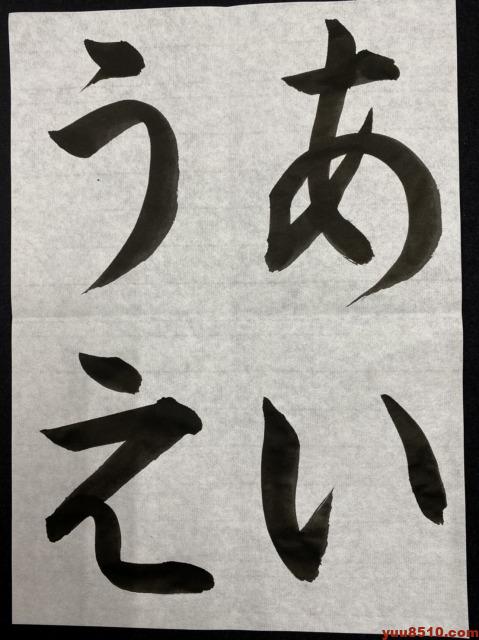 あい
うえ
yuu8510.com